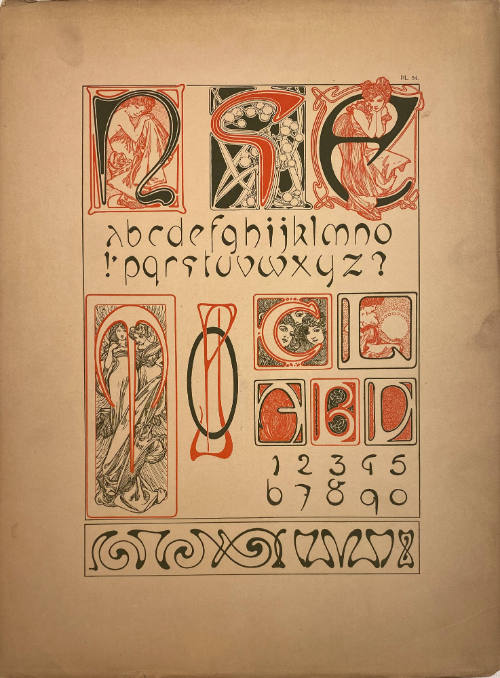 PL. 51.
n S E
abcdefghijklmno
!'pqrstuvwxyz?
M O C L
A B D
1 2 3 4 5
6 7 8 9 0